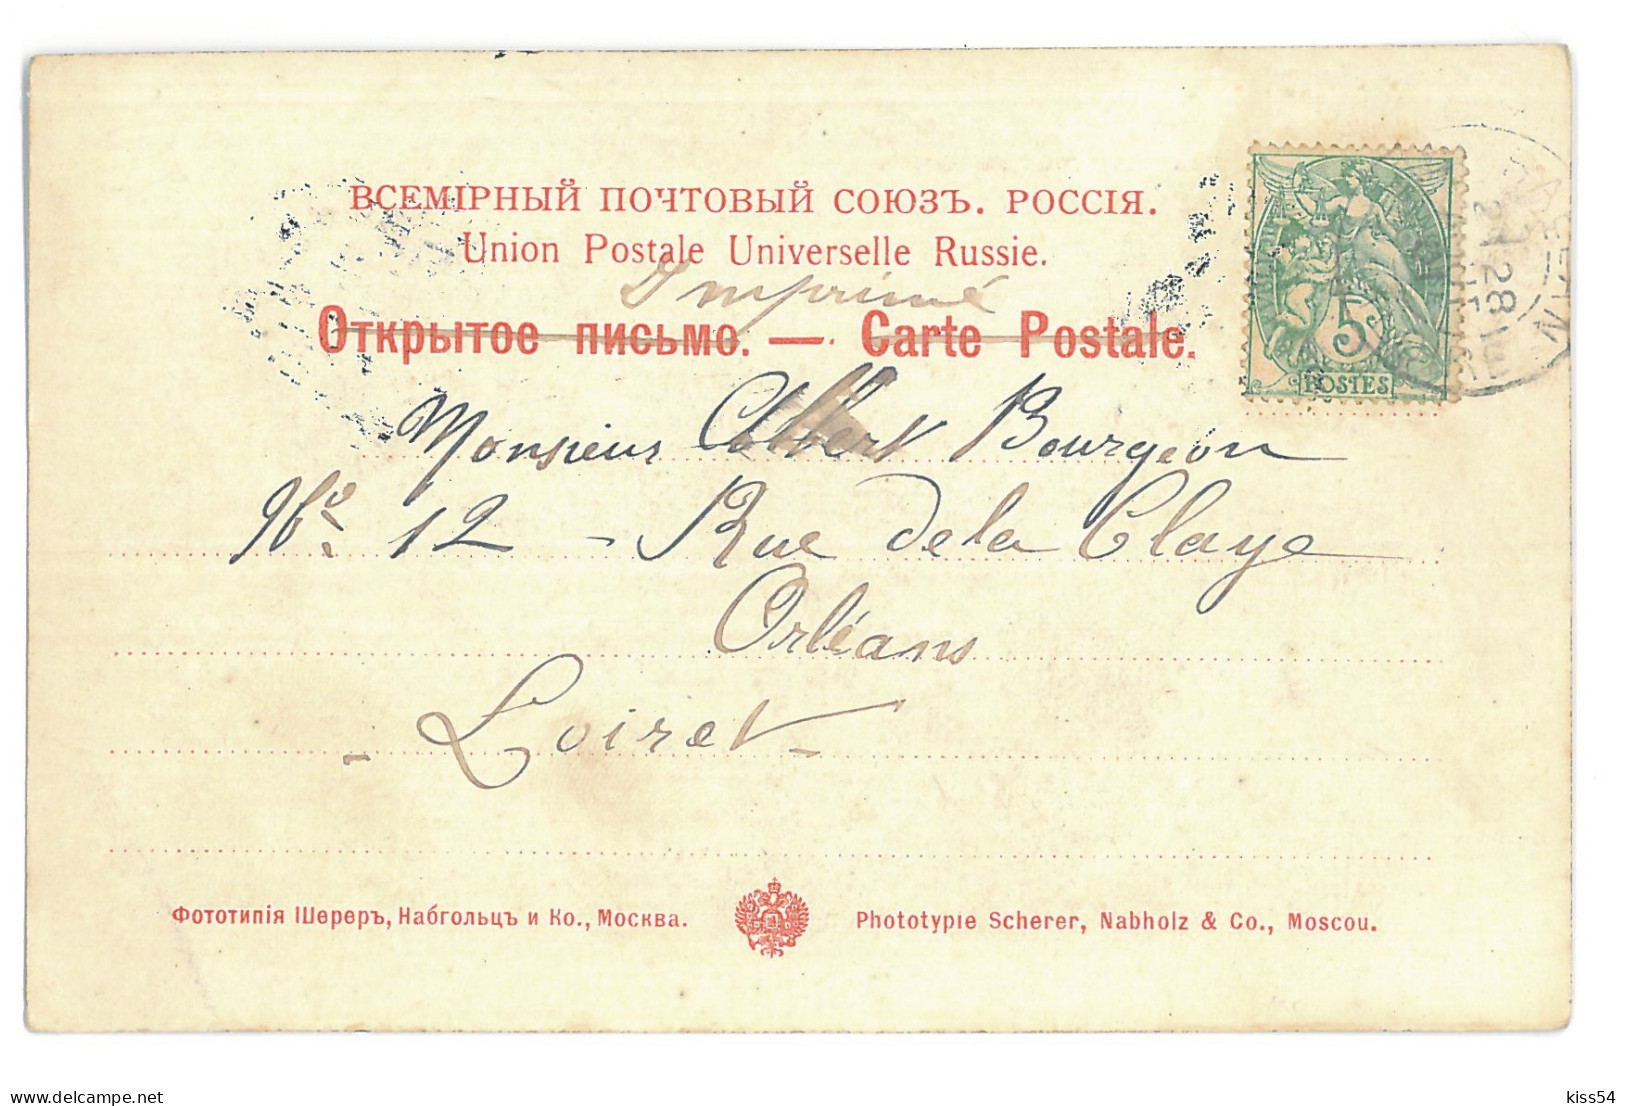 ВСЕМІРНЫЙ ПОЧТОВЫЙ СОЮЗЪ. РОССІЯ.
Union Postale Universelle Russie.
Imprimé
Открытое письмо. — Carte Postale.
5
POSTES
Monsieur Albert Bourgeon
No. 12 - Rue de la Claye
Orléans
- Loiret -
Фототипія Шереръ, Набгольцъ и Ко., Москва.
Phototypie Scherer, Nabholz & Co., Moscou.
delcampe.net
kiss54